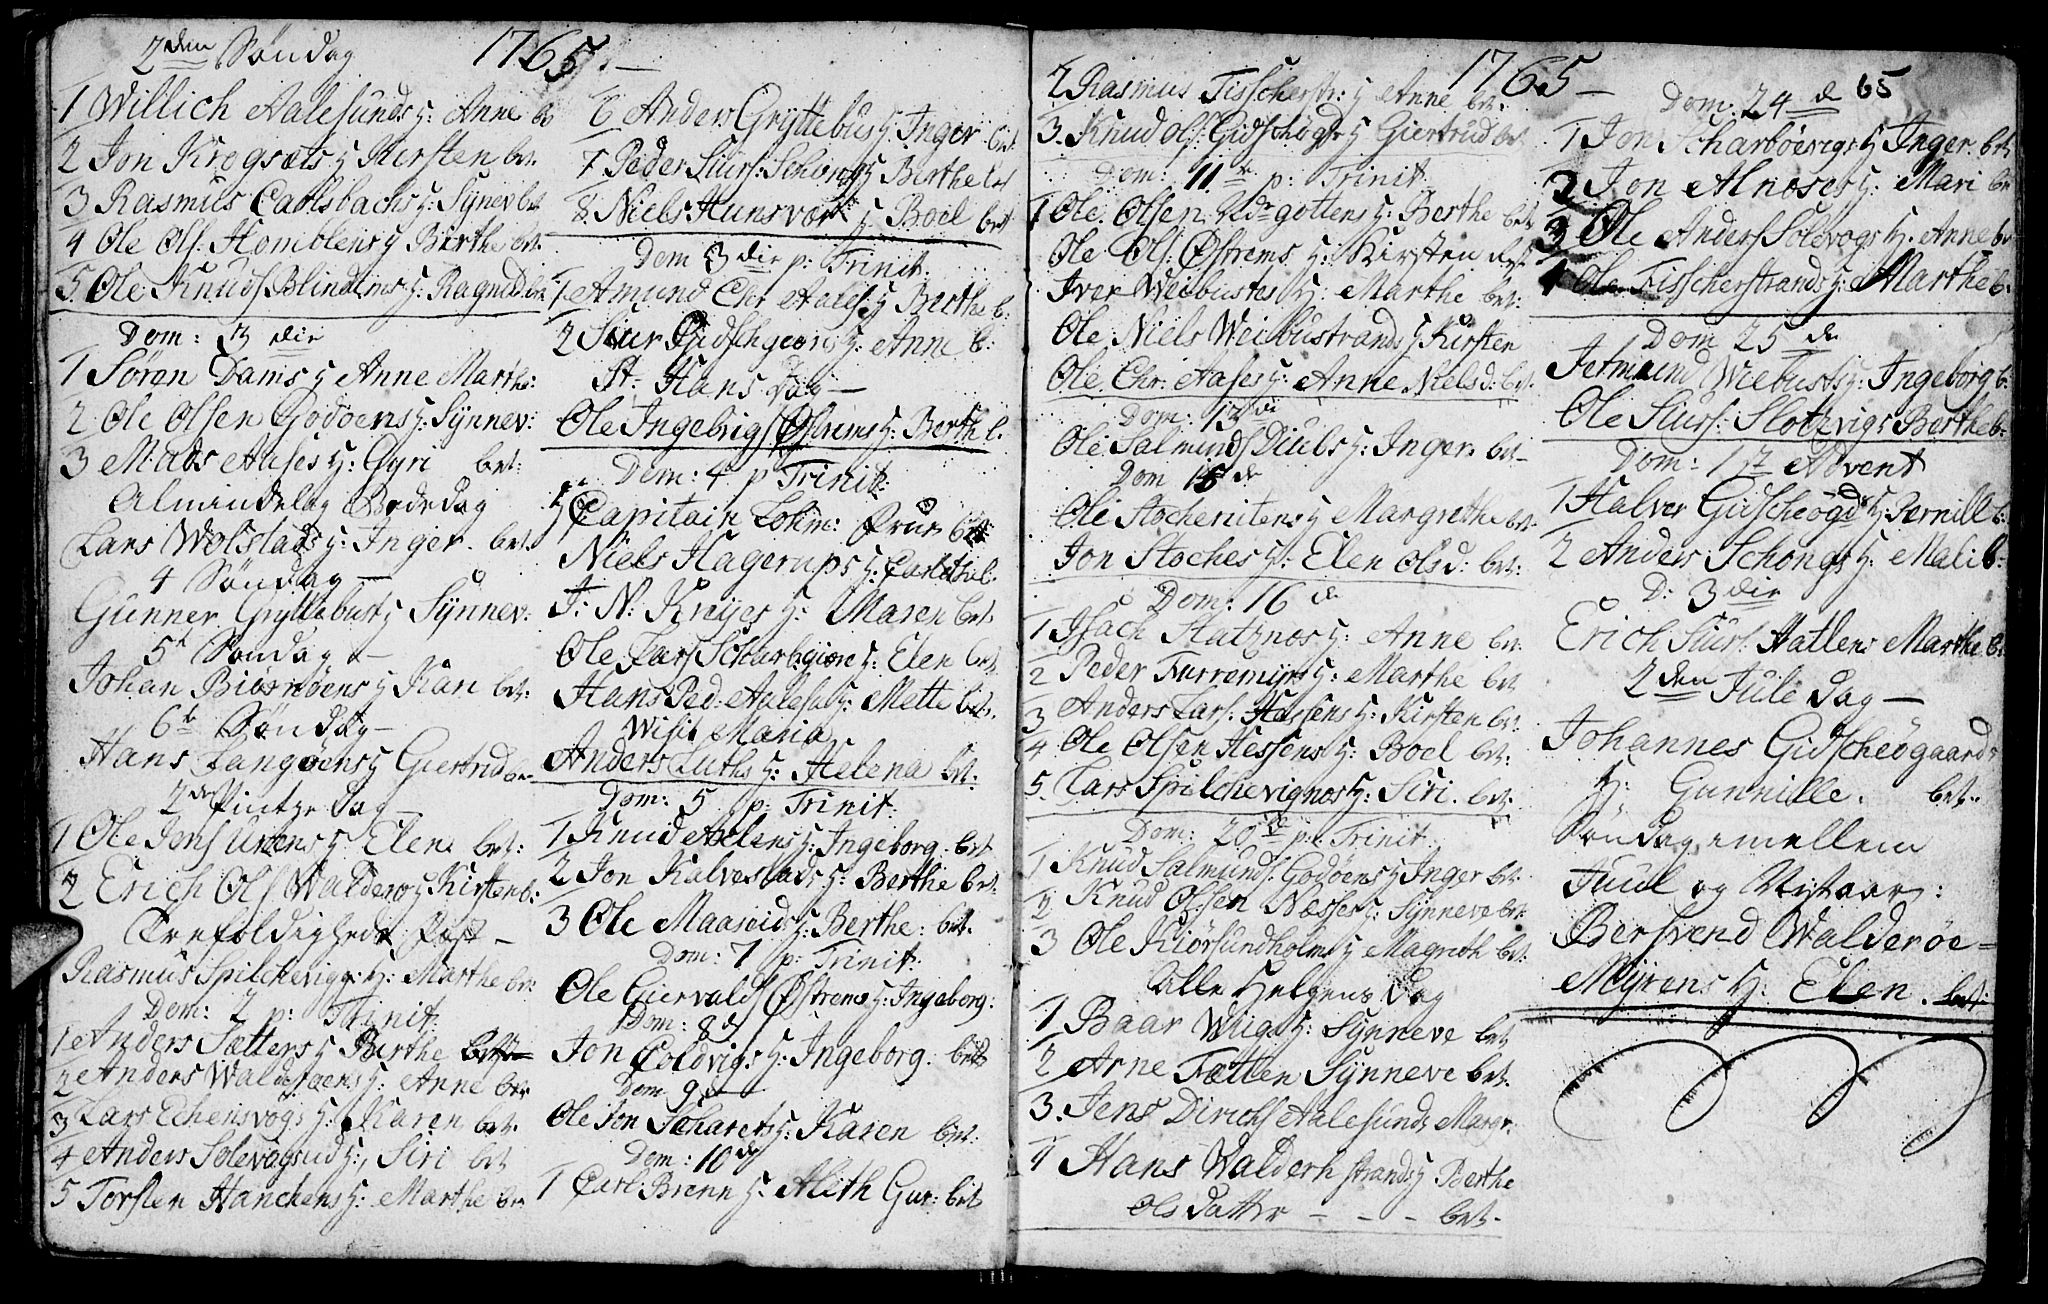 2den Søndag
1765.
1 Willich Aalesunds H: Anne b
2 Jon Krogsæts H Kirsten bet.
3 Rasmus Carlsbachs H: Synev bet
4 Ole Ols: Homblens H Berthe bet.
5. Ole Knuds Blindems H: Ragnild be
Dom: 3 die
1 Søren Dams H Anne Marthe:
2 Ole Olsen Godøens H: Synnev:
3 Mads Aases H: Gyri bet:
Almindelig Bededag
Lars Wolstads H: Inger. bet.
4 Søndag —
Gunner Gryttebust H Synnev:
5te Søndag —
Johan Biørnøens H Kari bet:
6te Søndag —
Hans Langøens H Giertrud be
2den Pintze Dag
1 Ole Jens Urkens H Elen bet:
2 Erich Ols Walderø H Kirsten b:
Trefoldigheds Fæst —
Rasmus Spilchevigs H: Marthe be:
Dom: 2 p: Trinit:
1 Anders Sætters H Berthe bet
2 Anders Walderøens H: Anne bet
3 Lars Echensvogs H: Karen bet.
4 Anders Solevogsiid H: Siri bet
5 Torsten Hanchens H: Marthe be
6 Anders Gryttebus H Inger bet.
7 Peder Siurs: Schong H Berthe bet
8. Niels Hunsvor H. Boel bet
Dom 3 die p: Trinit:
1. Amund Chr Aales H Berthe b:
2 Siur Gidschgiers H: Anne b:
St: Hans Dag —
Ole Ingebrigs Østrems H: Berth b.
Dom: 4 p Trinit:
H: Capitain Lohm: Frue bet
Niels Hagerups H: Carlethe b.
J: N: Krøyes H: Maren bet.
Ole Lars Scharbgiøre H: Elen bet
Hans Ped: Aales H: Mette bet.
Wisit Maria
Anders Luths H: Helena bet:
Dom: 5 p: Trinit:
1 Knud Aslens H: Ingeborg. bet
2 Jon Kalvestads H: Berthe bet.
3 Ole Maaseid H: Berthe: bet.
Dom: 7 p: Trinit:
Ole Giervalds Østrems H: Ingeborg:
Dom: 8 d
Jon Coldvigs H: Ingeborg. bet
Dom 9 d
Ole Jon Scharets H: Karen bet:
Dom: 10 de
1 Carl Brenn H: Alith Gur: bet
1765 —
2 Rasmus Fisscherstr: H Anne bet.
3. Knud Ols: Gidschøgr H Giertrud bet
Dom: 11te p: Trinit
1 Ole Olsen gottens H: Berthe bet
Ole Ols: Østrems H: Kirsten bet
Iver Weibustes H: Marthe bet:
Ole Niels Weibustrands H Kirsten
Ole Chr: Aases H: Anne Nielsd: bet.
Dom: 13 de
Ole Salmunds Diubs H: Inger bet
Dom 15 de
Ole Stochenitens H Margrethe bet.
Jon Stoches H: Elen Olsd: bet:
Dom: 16 de
1 Isach Slatznos H: Anne bet:
2 Peder Furremyrs H: Marthe bet
3 Anders Lars: Hessens H: Kirsten bet:
4 Ole Olsen Hessens H: Boel bet:
5. Lars Spilchevignos H: Siri. bet.
Dom: 20de p: Trinit:
1 Knud Salmunds Godøens H Inger bet.
2 Knud Olsen Næsses H: Synneve bet.
3 Ole Kiørsundholms H Magreth bet.
Alle Helgens Dag
1 Baar Wiigs H: Synneve bet
2 Arne Fætten Synneve bet.
3. Jens Dirichs Aalesunds Margr:
4 Hans Walderh strands H Berthe
Ols datter - - - bet.
65
Dom: 24 de
1 Jon Scharbøevigs H Inger. bet
2 Jon Alnoses H: Mari be
3 Ole Anders Solevogs H. Anne be
4 Ole Fisscherstrands H: Marthe b.
Dom 25 de
Jetmund Wiebusts H: Ingeborg b.
Ole Siurs: Slotzvigs Berthe b:
Dom: 1te Advent
1 Halver Gidscheøgd H: Pernille b:
2 Anders Schongs H: Mali b:
D: 3 die
Erich Siurs: Hatlens Marthe b:
2den Jule Dag —
Johannes Gidscheøgaards
H: Gunnille. bet.
Søndag emellem
Juul og Nytaar:
Bersvend Walderøe-
Myrens H: Elen. bet: